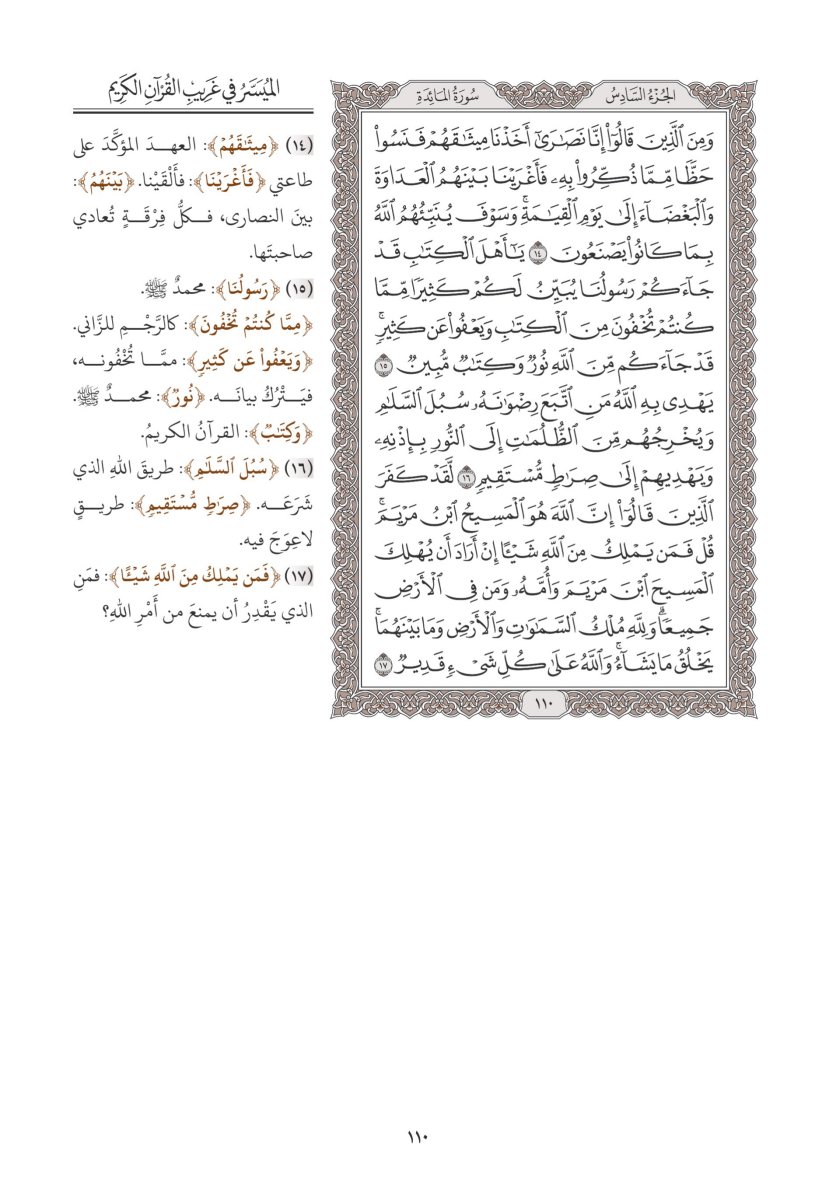 الجُزْءُ السَّادِسُ
سُورَةُ المَائِدَةِ
وَمِنَ ٱلَّذِينَ قَالُوٓاْ إِنَّا نَصَٰرَىٰٓ أَخَذۡنَا مِيثَٰقَهُمۡ فَنَسُواْ
حَظّٗا مِّمَّا ذُكِّرُواْ بِهِۦ فَأَغۡرَيۡنَا بَيۡنَهُمُ ٱلۡعَدَاوَةَ
وَٱلۡبَغۡضَآءَ إِلَىٰ يَوۡمِ ٱلۡقِيَٰمَةِۚ وَسَوۡفَ يُنَبِّئُهُمُ ٱللَّهُ
بِمَا كَانُواْ يَصۡنَعُونَ ١٤ يَٰٓأَهۡلَ ٱلۡكِتَٰبِ قَدۡ
جَآءَكُمۡ رَسُولُنَا يُبَيِّنُ لَكُمۡ كَثِيرٗا مِّمَّا
كُنتُمۡ تُخۡفُونَ مِنَ ٱلۡكِتَٰبِ وَيَعۡفُواْ عَن كَثِيرٖۚ
قَدۡ جَآءَكُم مِّنَ ٱللَّهِ نُورٞ وَكِتَٰبٞ مُّبِينٞ ١٥
يَهۡدِي بِهِ ٱللَّهُ مَنِ ٱتَّبَعَ رِضۡوَٰنَهُۥ سُبُلَ ٱلسَّلَٰمِ
وَيُخۡرِجُهُم مِّنَ ٱلظُّلُمَٰتِ إِلَى ٱلنُّورِ بِإِذۡنِهِۦ
وَيَهۡدِيهِمۡ إِلَىٰ صِرَٰطٖ مُّسۡتَقِيمٖ ١٦ لَّقَدۡ كَفَرَ
ٱلَّذِينَ قَالُوٓاْ إِنَّ ٱللَّهَ هُوَ ٱلۡمَسِيحُ ٱبۡنُ مَرۡيَمَۚ
قُلۡ فَمَن يَمۡلِكُ مِنَ ٱللَّهِ شَيۡـًٔا إِنۡ أَرَادَ أَن يُهۡلِكَ
ٱلۡمَسِيحَ ٱبۡنَ مَرۡيَمَ وَأُمَّهُۥ وَمَن فِي ٱلۡأَرۡضِ
جَمِيعٗاۗ وَلِلَّهِ مُلۡكُ ٱلسَّمَٰوَٰتِ وَٱلۡأَرۡضِ وَمَا بَيۡنَهُمَاۚ
يَخۡلُقُ مَا يَشَآءُۚ وَٱللَّهُ عَلَىٰ كُلِّ شَيۡءٖ قَدِيرٞ ١٧
١١٠
المُيَسَّرُ في غَرِيبِ القُرْآنِ الكَرِيمِ
(١٤) ﴿مِيثَٰقَهُمۡ﴾: العهدَ المؤكَّدَ على
طاعتي ﴿فَأَغۡرَيۡنَا﴾: فألْقَيْنا. ﴿بَيۡنَهُمُ﴾:
بينَ النصارى، فكلُّ فِرْقَةٍ تُعادي
صاحبتَها.
(١٥) ﴿رَسُولُنَا﴾: محمدٌ ﷺ.
﴿مِّمَّا كُنتُمۡ تُخۡفُونَ﴾: كالرَّجْمِ للزَّاني.
﴿وَيَعۡفُواْ عَن كَثِيرٖ﴾: ممَّا تُخْفُونه،
فيَتْرُكُ بيانَه. ﴿نُورٞ﴾: محمدٌ ﷺ.
﴿وَكِتَٰبٞ﴾: القرآنُ الكريمُ.
(١٦) ﴿سُبُلَ ٱلسَّلَٰمِ﴾: طريقَ اللهِ الذي
شَرَعَه. ﴿صِرَٰطٖ مُّسۡتَقِيمٖ﴾: طريقٍ
لاعِوَجَ فيه.
(١٧) ﴿فَمَن يَمۡلِكُ مِنَ ٱللَّهِ شَيۡـًٔا﴾: فمَنِ
الذي يَقْدِرُ أن يمنعَ من أَمْرِ اللهِ؟
١١٠